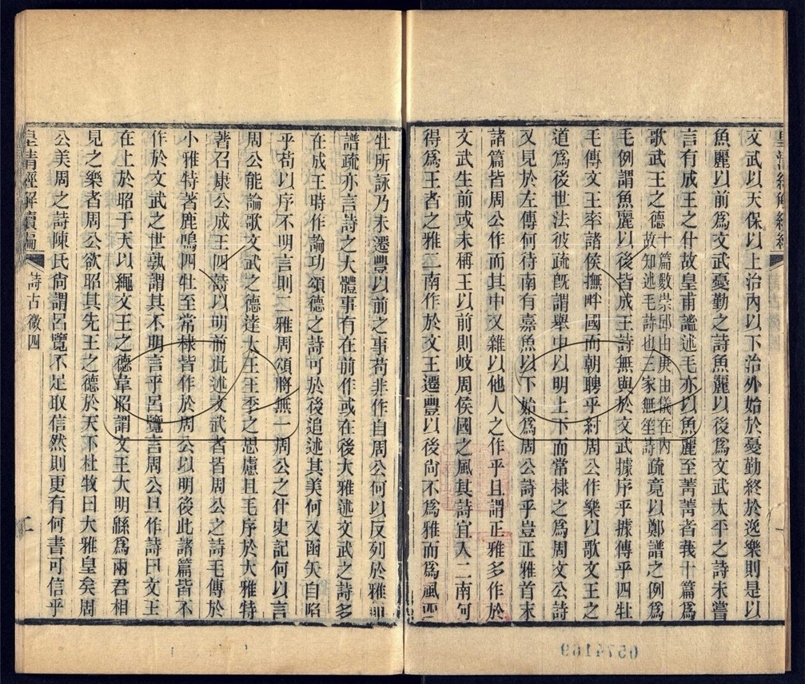 文武以天保以上治內以下治外始於憂勤終於逸樂則是以
魚麗以前爲文武憂勤之詩魚麗以後爲文武太平之詩未嘗
言有成王之什故皇甫謐述毛亦以魚麗至菁菁者莪十篇爲
歌武王之德十篇數崇邱由庚由儀在內故知述毛詩也三家無笙詩疏竟以鄭譜之例爲
毛例謂魚麗以後皆成王詩無與於文武據序乎據傳乎四牡
毛傳文王率諸侯撫畔國而朝聘乎紂周公作樂以歌文王之
道爲後世法彼疏旣謂舉中以明上下而常棣之爲周文公詩
又見於左傳何待南有嘉魚以下始爲周公詩乎豈正雅首末
諸篇皆周公作而其中又雜以他人之作乎且謂正雅多作於
文武生前或未稱王以前則岐周侯國之風其詩宜入二南何
得爲王者之雅二南作於文王遷豐以後尙不爲雅而爲風四
牡所詠乃未遷豐以前之事苟非作自周公何以反列於雅
譜疏亦言詩之大體事有在前作或在後大雅述文武之詩多
在成王時作論功頌德之詩可於後追述其美何又函矢自陷
乎苟以序不明言則二雅周頌將無一周公之什史記何以言
周公能論歌文武之德達太王王季之思慮且毛序於大雅特
著召康公成王四詩以明前此述文武者皆周公之詩毛傳於
小雅特著鹿鳴四牡至常棣皆作於周公以明後此諸篇皆不
作於文武之世孰謂其不明言乎呂覽言周公旦作詩曰文王
在上於昭于天以繩文王之德韋昭謂文王大明緜爲兩君相
見之樂者周公欲昭其先王之德於天下杜牧曰大雅皇矣周
公美周之詩陳氏尙謂呂覽不足取信然則更有何書可信乎
皇淸經解續編
詩古微四
二
0574169